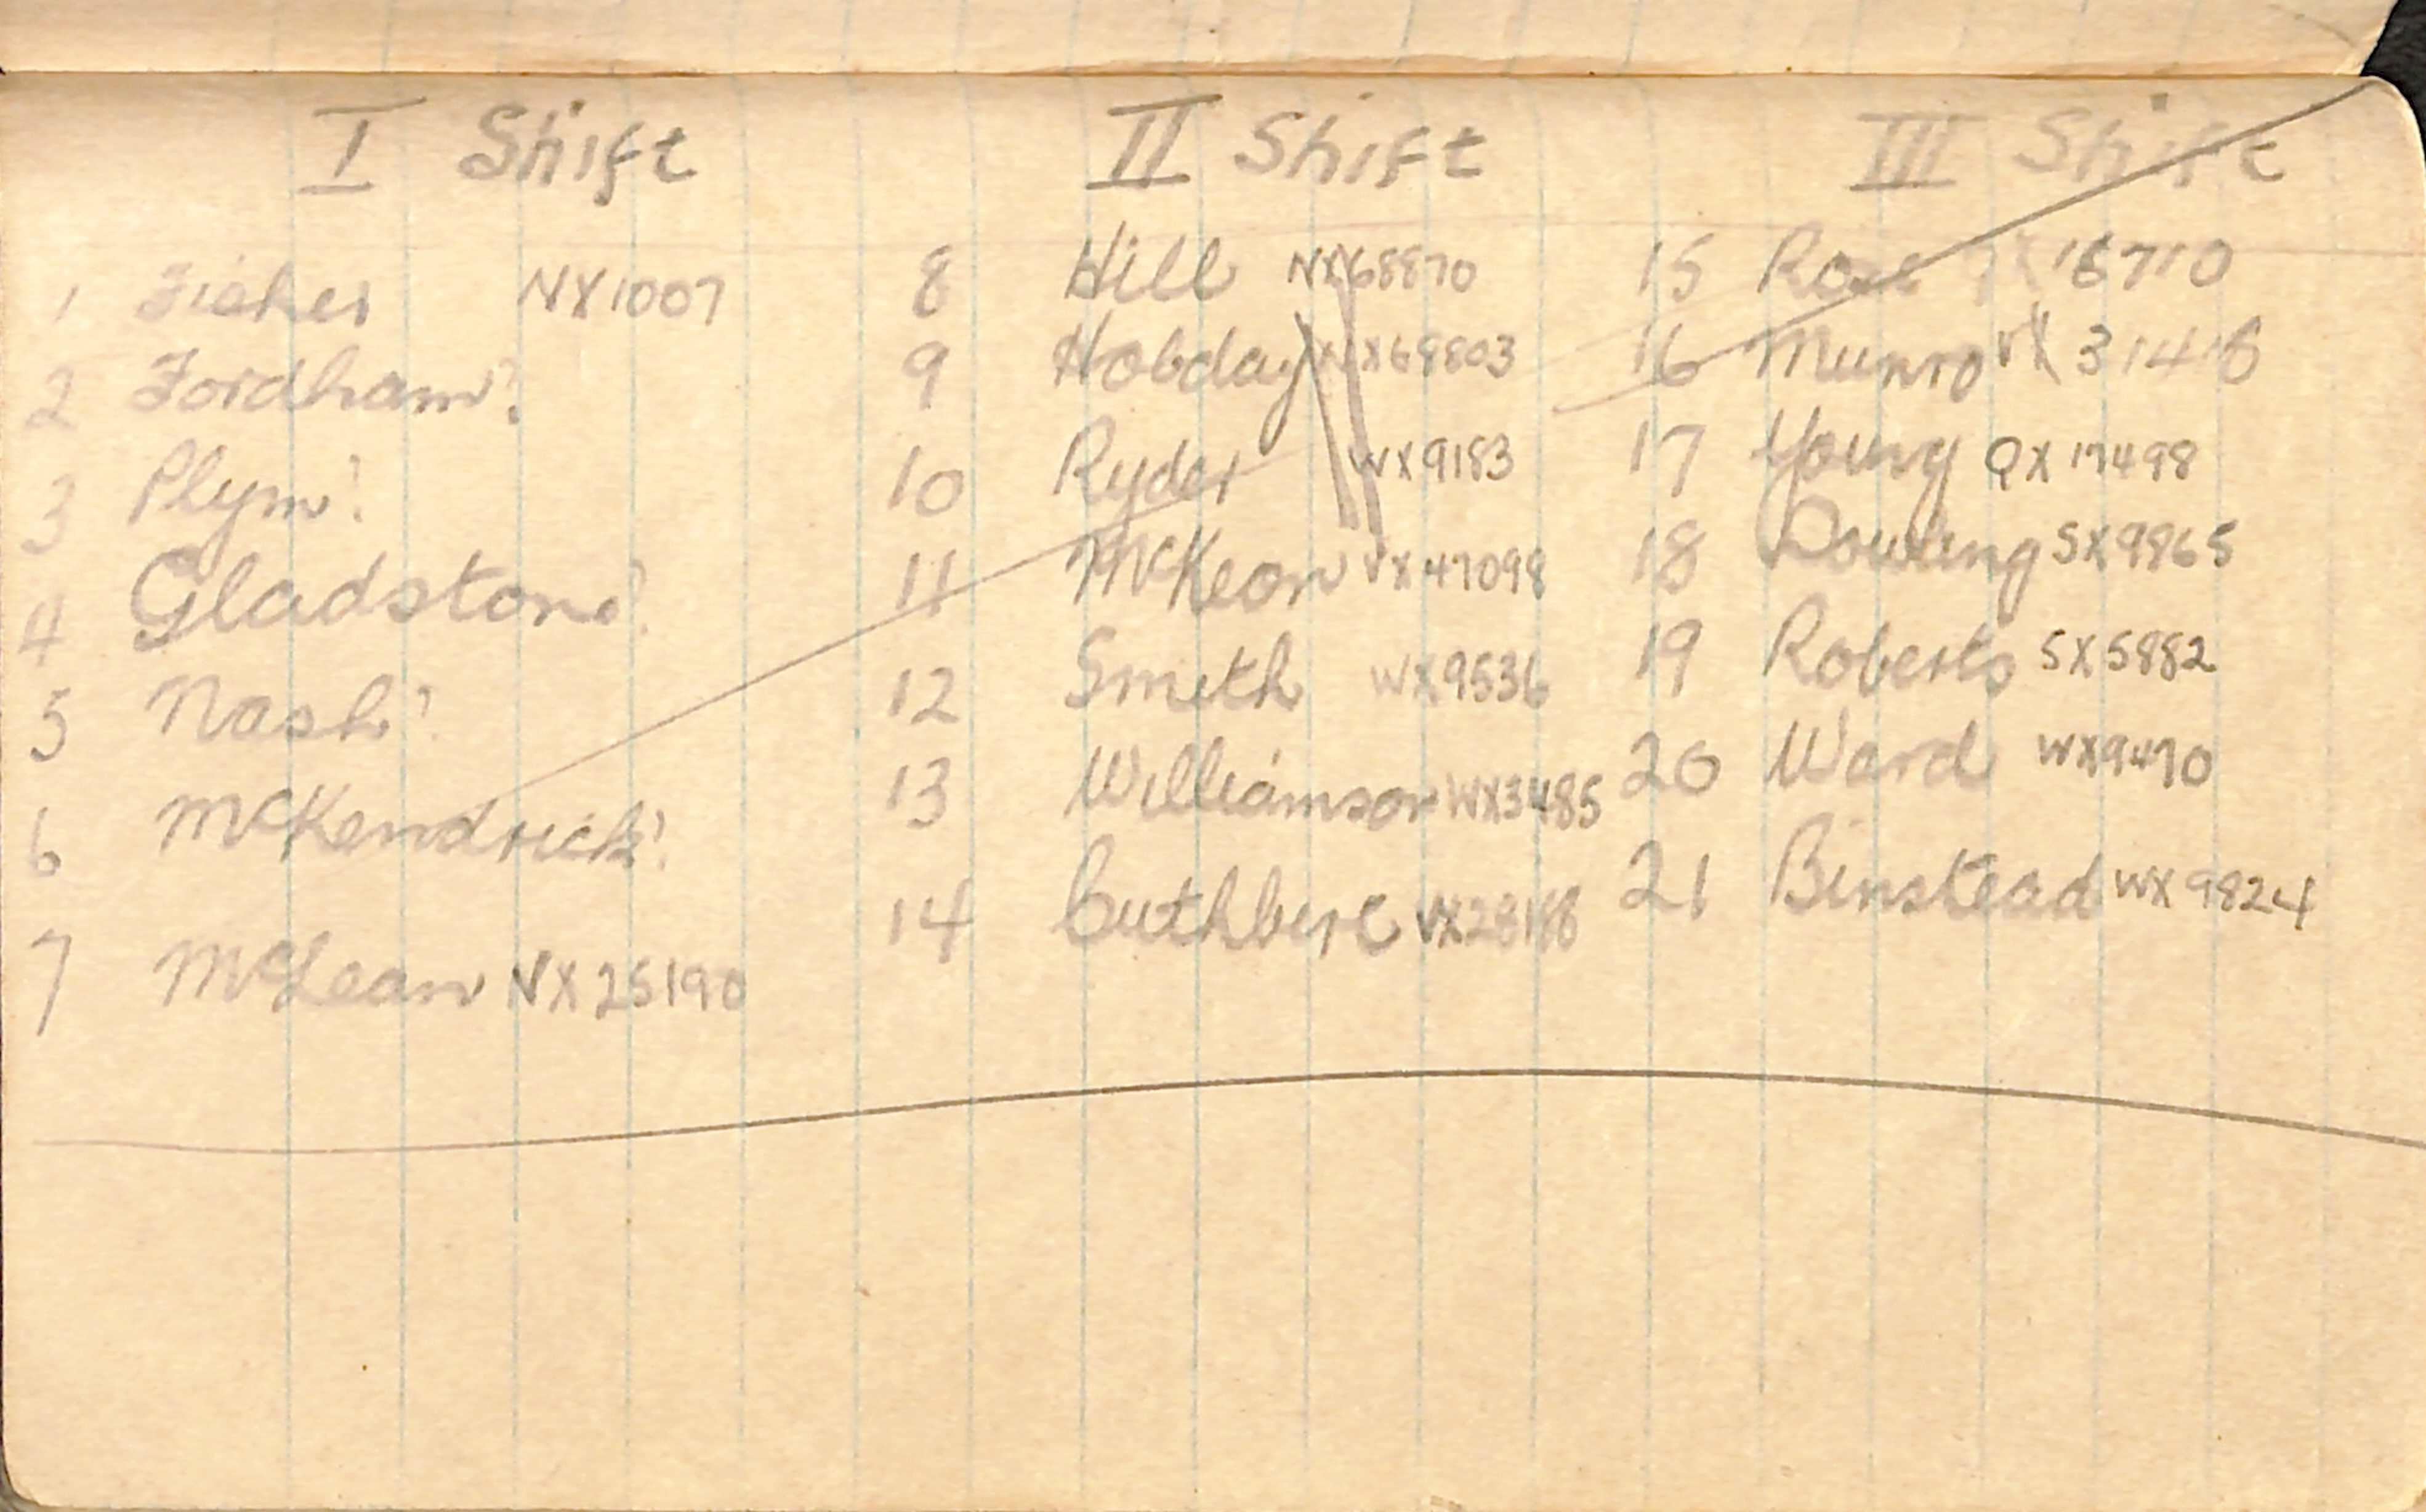 I Shift
1 Fisher NX1007
2 Fordham?
3 Plym?
4 Gladstone?
5 Nash?
6 McKendrick?
7 McLean NX25190
II Shift
8 Hill NX68870
9 Hobday NX69803
10 Ryder WX9183
11 McKeon VX47098
12 Smith WX9536
13 Williamson WX3485
14 Cuthbert
III Shift
15 Rose
16 Munro VX
17 Young QX17498
18 Dowling SX9865
19 Roberts SX5882
20 Ward WX9470
21 Binstead WX9824